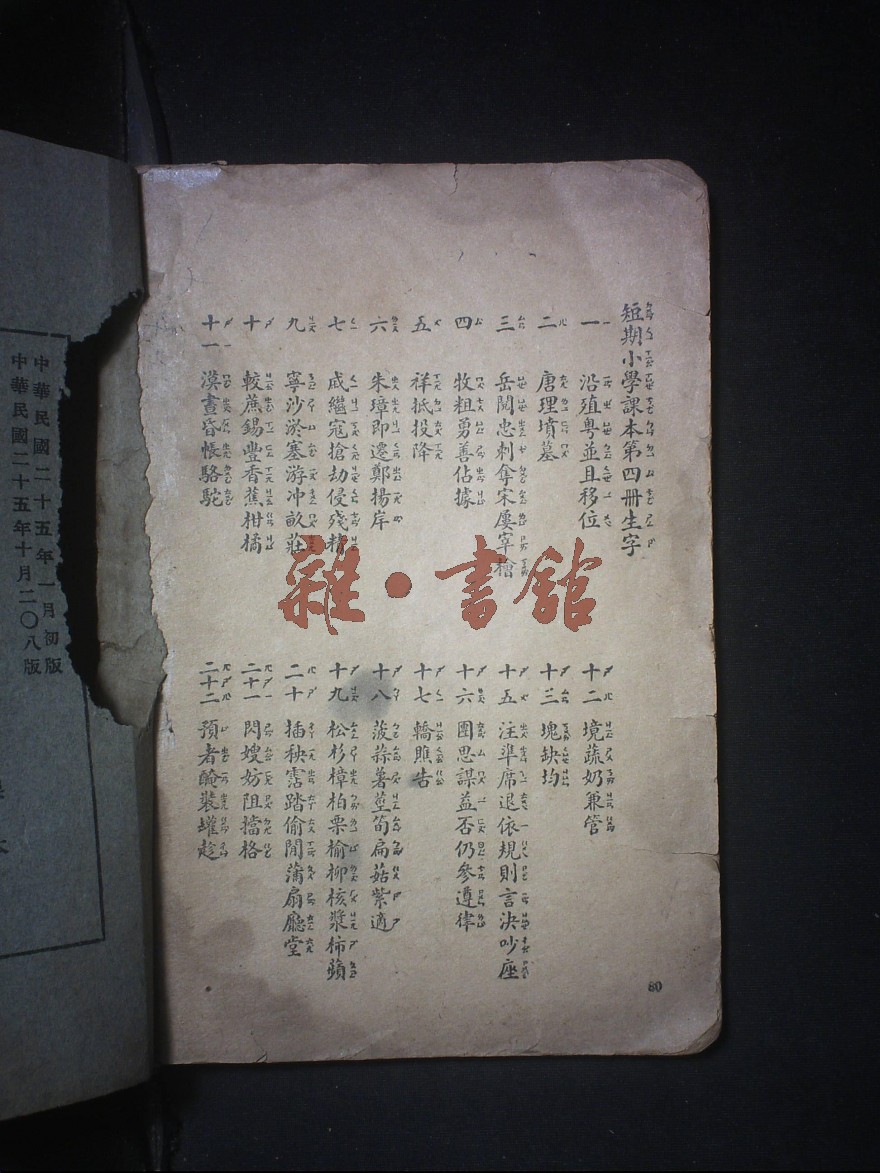 短期小學課本第四冊生字
一 沿殖粵並且移位
二 唐理墳墓
三 岳閱忠刺奪宋屢宰檜
四 牧粗勇善佔據
五 祥抵投降
六 朱璋即遷鄭揚岸
七 戚繼寇搶劫侵殘精
九 寧沙淤塞游冲畝莊
十 較蔗錫豐香蕉柑橘
十一 漠晝昏帳駱駝
十二 境蔬奶兼管
十三 塊缺均
十五 注準席退依規則言決吵座
十六 團思謀益否仍參遵律
十七 轎瞧告
十八 菠蒜薯莖筍扁菇紫適
十九 松杉樟柏栗榆柳核漿柿蘋
二十 插秧霑踏偷閒蒲扇廳堂
二十一 閃嫂妨阻擋格
二十二 預者醃裝罐趁
80
雜·書館
中華民國二十五年一月初版
中華民國二十五年十月二〇八版